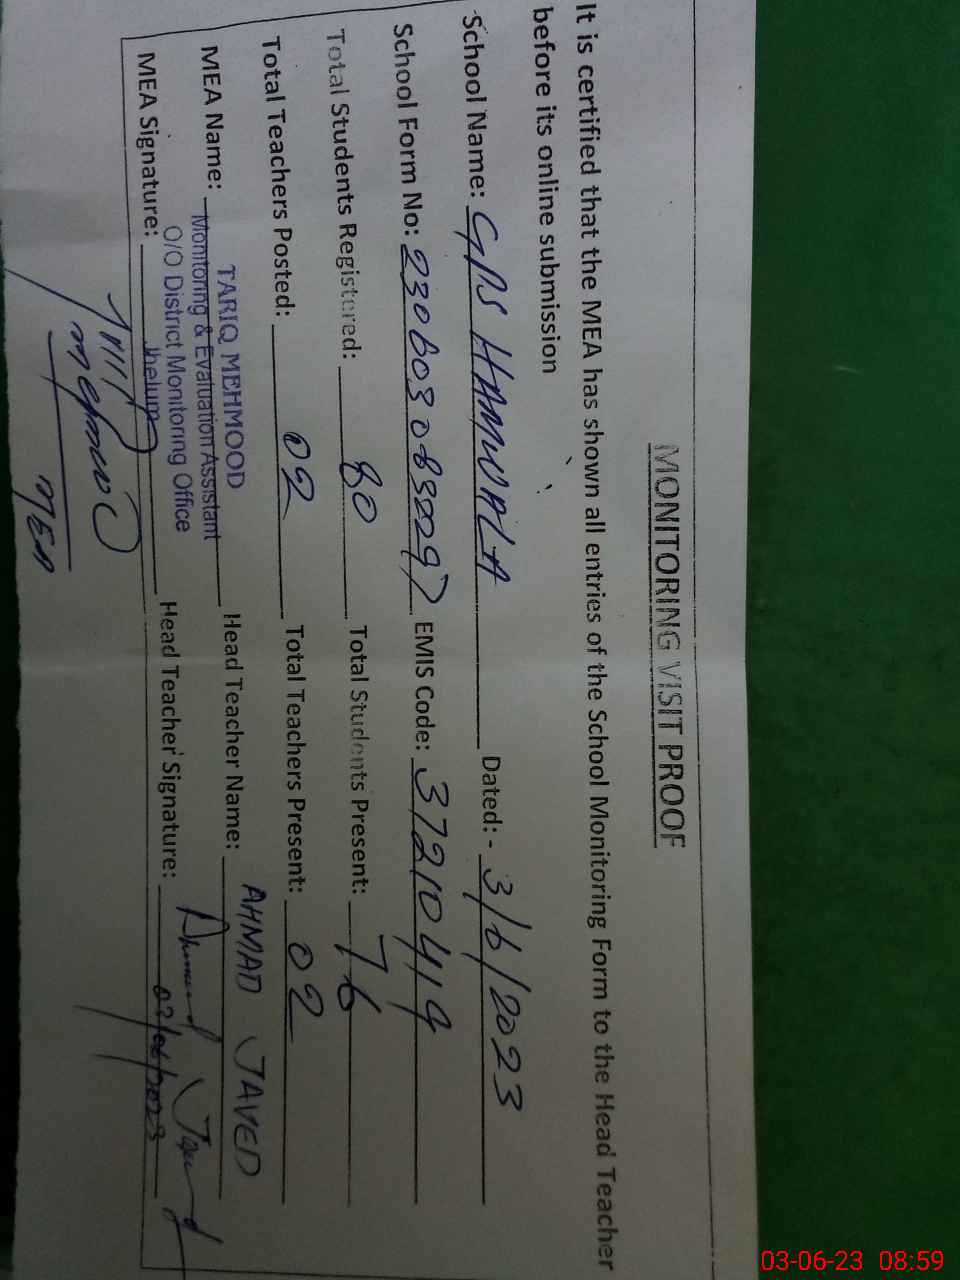 MONITORING VISIT PROOF
It is certified that the MEA has shown all entries of the School Monitoring Form to the Head Teacher
before its online submission
School Name: GPS HAMWALA Dated:- 3/6/2023
School Form No: EMIS Code: 37210419
Total Students Registered: 80 Total Students Present: 76
Total Teachers Posted: 02 Total Teachers Present: 02
TARIQ MEHMOOD
MEA Name: Monitoring & Evaluation Assistant Head Teacher Name: AHMAD JAVED
O/O District Monitoring Office
Jhelum
MEA Signature: Head Teacher Signature: Ahmad Javed
03/06/2023
Mehmood
MEA
03-06-23 08:59